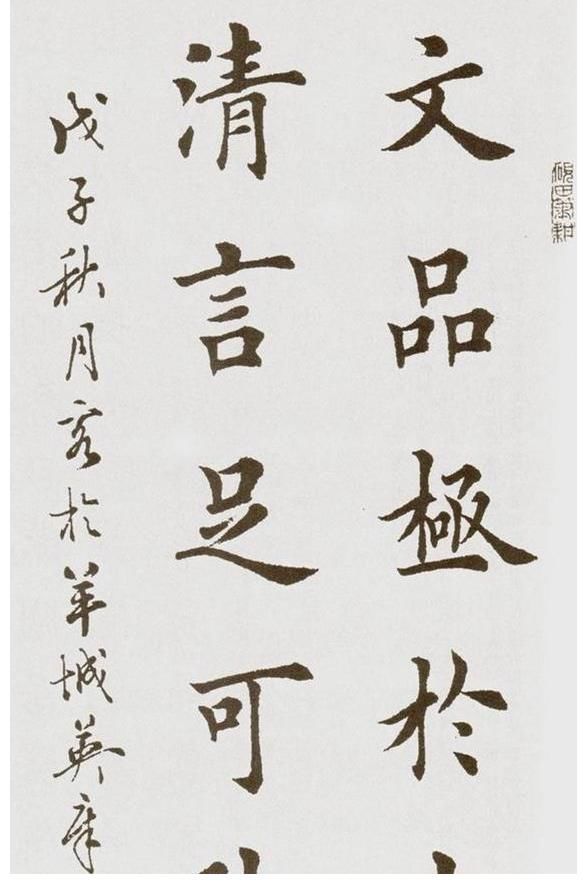 文品極於
清言足可
戊子秋月客於羊城英